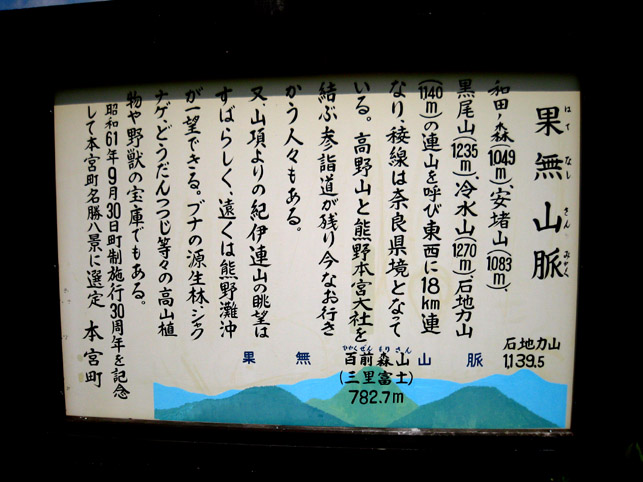 果無山脈
はて なし さん みゃく
和田ノ森(1049m)、安堵山(1083m)、
黒尾山(1235m)、冷水山(1270m)石地力山
(1140m)の連山を呼び東西に18km連
なり、稜線は奈良県境となって
いる。高野山と熊野本宮大社を
結ぶ、参詣道が残り今なお行き
かう人々もある。
又、山頂よりの紀伊連山の眺望は
すばらしく、遠くは熊野灘沖
が一望できる。ブナの源生林、シャク
ナゲ、どうだんつつじ等々の高山植
物や野獣の宝庫でもある。
昭和61年9月30日町制施行30周年を記念
して本宮町名勝八景に選定 本宮町
石地力山
1,139.5
果無山脈
ひやくぜんもりさん
百前森山
(三里富士)
782.7m